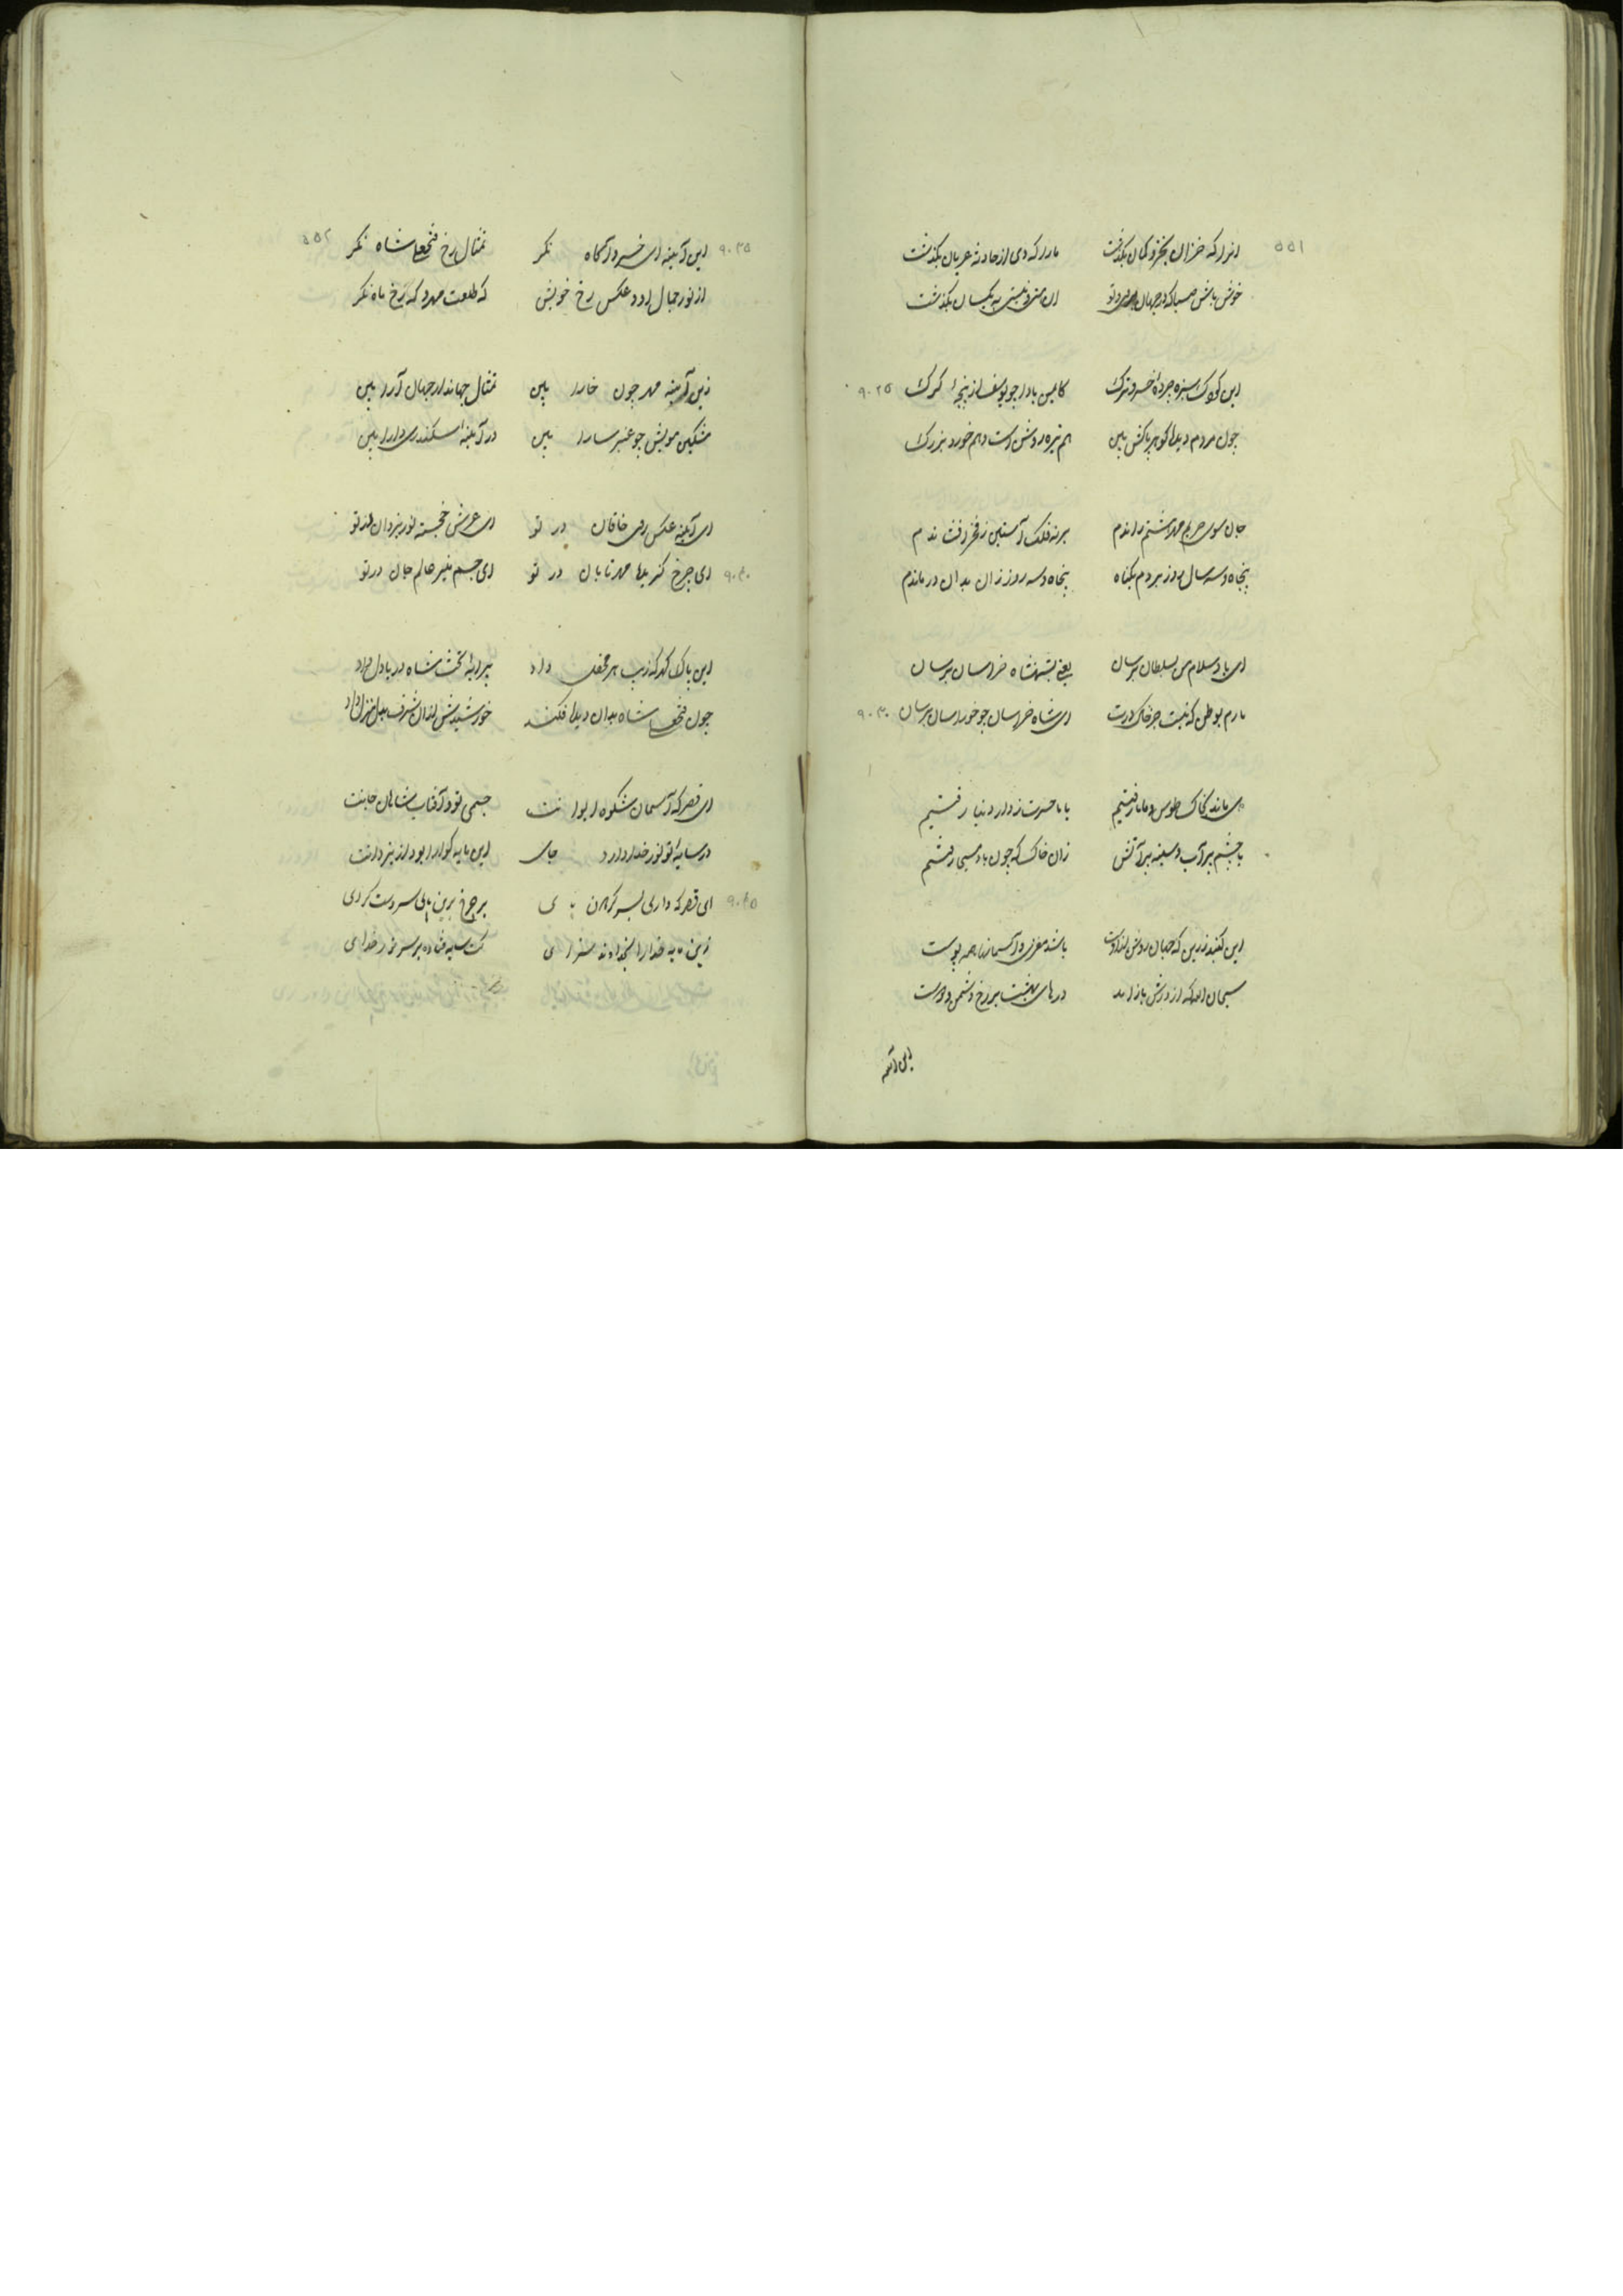 ۵۵۱
انرا که خزان بخز و کتان بگذشت مارا که دی از حادثه عریان بگذشت
خوش باش صبا که در جهان بر من و تو این نیز و نیز به یکسان بگذشت
این کودک سبزه چرده خسرو ترک کایمن بادا چو یوسف از پنجه گرگ ۹۰۲۵
چون مردم دیده گوهر پاکش بین هم تیره و روشن است و هم خورد و بزرگ
جان سوی حریم راندم بر نه فلک آستین ز فخر افشاندم
پنجاه و سه سال روز بردم بگناه پنجاه و سه روز زان بدان درماندم
ای باد سلام من بسلطان برسان یعنی بشهنشاه خراسان برسان
بارم بوطن که نیست جز خاک درت ای شاه خراسان چو خور اسان برسان ۹۰۳۰
می ماند بخاک طوس و ما رفتیم با با حسرت ز دار دنیا رفتیم
با چشم پر آب و سینه پر آتش زان خاک که چون باد مسیحی رفتیم
این گنبد زرین که جهان روشن ازوست باشد مغزی و آسمانها همه پوست
سبحان الله که از درش باز آمد درهای بهشت بر رخ دشمن و دوست
این آینه
۵۵۲
۹۰۳۵ این آینه ای خسرو آگاه نگر تمثال رخ فتحعلیشاه نگر
از نور جمال او و عکس رخ خویش گه طلعت مهر و گه رخ ماه نگر
زین آینه مهر چون خارا بین تمثال جهاندار جهان آرا بین
مشکین مویش چو عنبر سارا بین در آینه اسکندری دارا بین
ای آینه عکس روی خاقان در تو ای عرش خجسته نور یزدان در تو
۹۰۴۰ ای چرخ گزیده مهر تابان در تو ای جسم منیر عالم جان در تو
این پاک گهر که زیب هر محفل داد پیرایه تخت شاه دریادل داد
چون فتحعلی شاه بدان دیده فکند خورشیدش از آن شرف بدل منزل داد
ای قصر که آسمان شکوه ایوانت جسمی تو و آفتاب شاهان جانت
در سایه تو نور خدا دارد جای این پایه کرا بود از یزدانت
۹۰۴۵ ای قصر که داری بسر گردون پای بر چرخ برین پای سر دست گرای
زین پایه خدا را بخداوند سزای کت سایه فتاده بر سر نور خدای